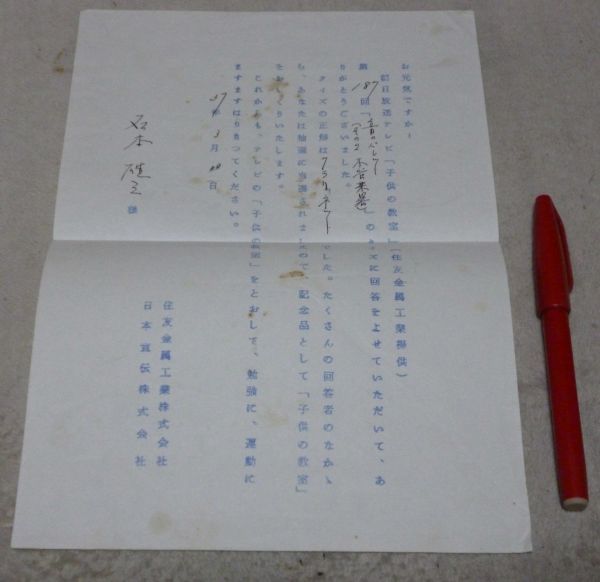 お元気ですか!
記日放送テレビ「子供の教室」(住友金属工業提供)
第187回「音のパレード(その2 木管楽器)」のクイズに回答をよせていただいて、あ
りがとうございました。
クイズの正解はクラリネットでした。たくさんの回答者のなか
ら、あなたは抽選に当選されましたので、記念品として「子供の教室」
をおおくりいたします。
これからも、テレビの「子供の教室」をとおして、勉強に、運動に
ますますはりきつてください。
37年3月
日
石本
様
住友金属工業株式会社
日本宣伝株式会社